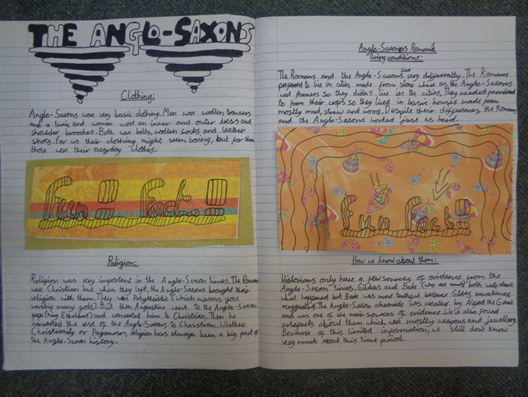 THE ANGLO-SAXONS
Clothing:
Anglo-Saxons wore very basic clothing. Men wore woollen trousers
and a tunic and women wore an inner and outer dress and
shoulder brooches. Both wore belts, woollen cloaks and leather
shoes. For us their clothing might seem boring, but for them
those were their everyday clothes.
Fun Fact!
Religion:
Religion was very important in the Anglo-Saxon times. The Romans
were Christian but when they left, the Anglo-Saxons brought their
religion with them. They were Polytheistic (which means you
worship many gods). But then Augustine went to the Anglo-Saxon
king and converted him to Christian. Then he
converted the rest of the Anglo-Saxons to Christian. Wether
Christianity or Paganism, religion has always been a big part of
the Anglo-Saxon history.
Anglo-Saxons Romans
living conditions:
The Romans and the Anglo-Saxons live very differently. The Romans
prefered to live in cities made from stone where as the Anglo-Saxons
were farmers so they didn't live in the cities. They needed farmland
to farm their crops so they lived in basic houses made from
mostly mud, straw and wood. Despite their differences, the Romans
and the Anglo-Saxons worked just as hard.
fun fact
How we know about them:
Historians only have a few sources of evidence from the
Anglo-Saxon times. Gildas and Bede both wrote about
what happened but Bede was most truthful because Gildas sometimes
exaggerated. The Anglo-Saxon chronicle was created by Alfred the Great
and was one of the main sources of evidence. We've also found
artefacts about them which were mostly weapons and jewellery.
Because of this limited information, we still don't know
very much about this time period.